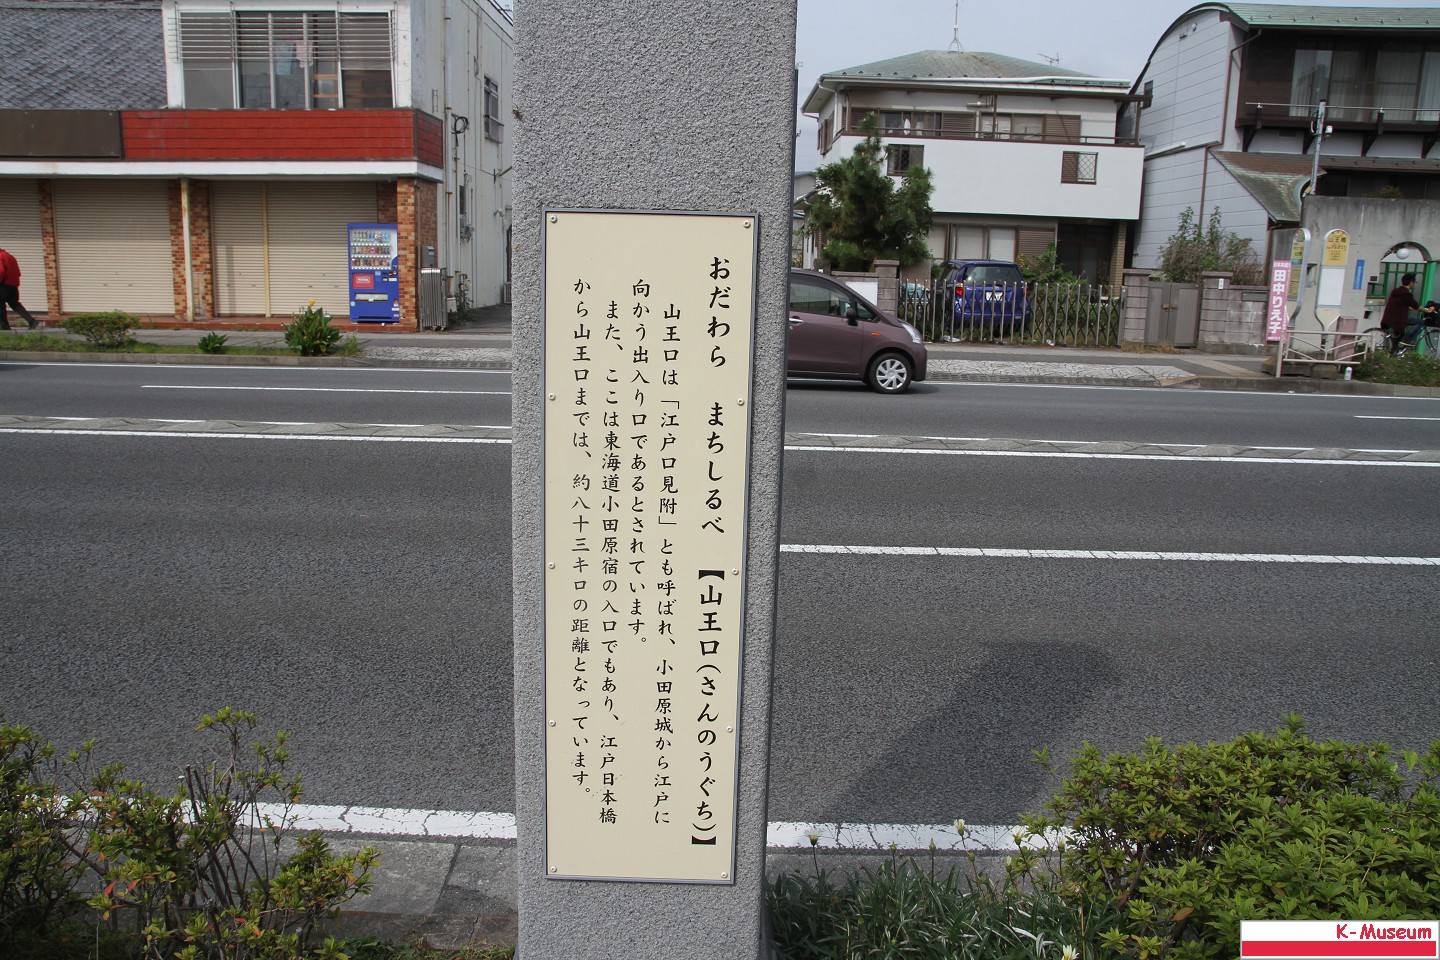 おだわら　まちしるべ　【山王口(さんのうぐち)】
山王口は「江戸口見附」とも呼ばれ、小田原城から江戸に
向かう出入り口であるとされています。
また、ここは東海道小田原宿の入口でもあり、江戸日本橋
から山王口までは、約八十三キロの距離となっています。
田中りえ子
山王橋
K-Museum